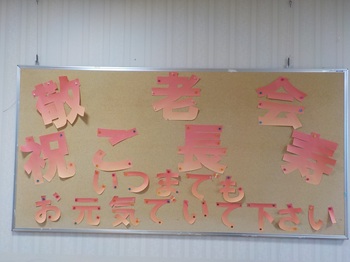 敬老会
祝ご長寿
いつまでも
お元気でいて下さい